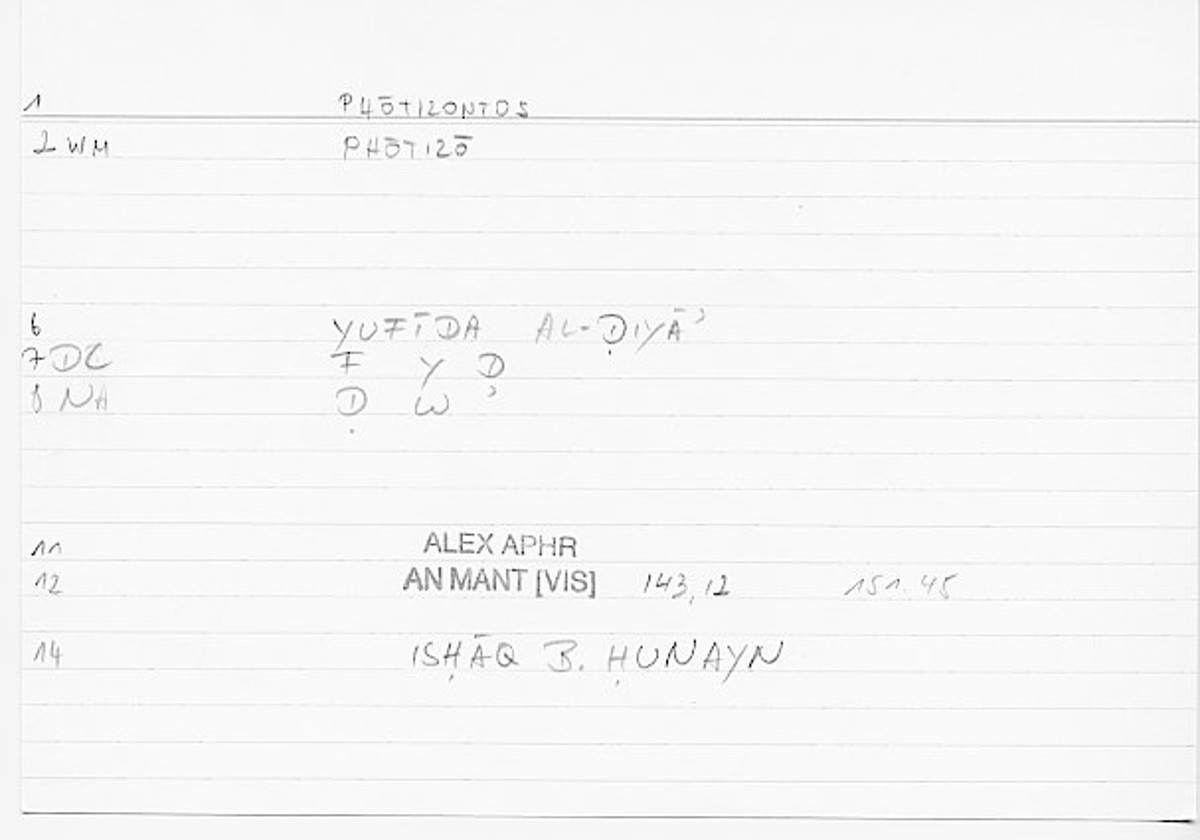 1 PHŌTIZONTOS
2 WM PHŌTIZŌ
6 YUFĪDA AL-ḌIYĀʾ
7 DC F Y D
8 NA Ḍ W ʾ
11 ALEX APHR
12 AN MANT [VIS] 143,12 151.45
14 ISḤĀQ B. ḤUNAYN